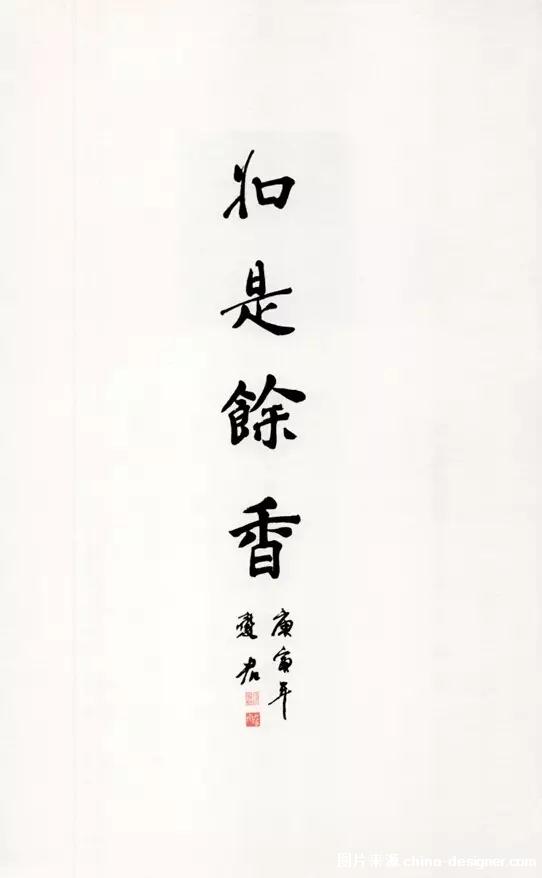 如是餘香
庚寅年
图片来源 china-designer.com